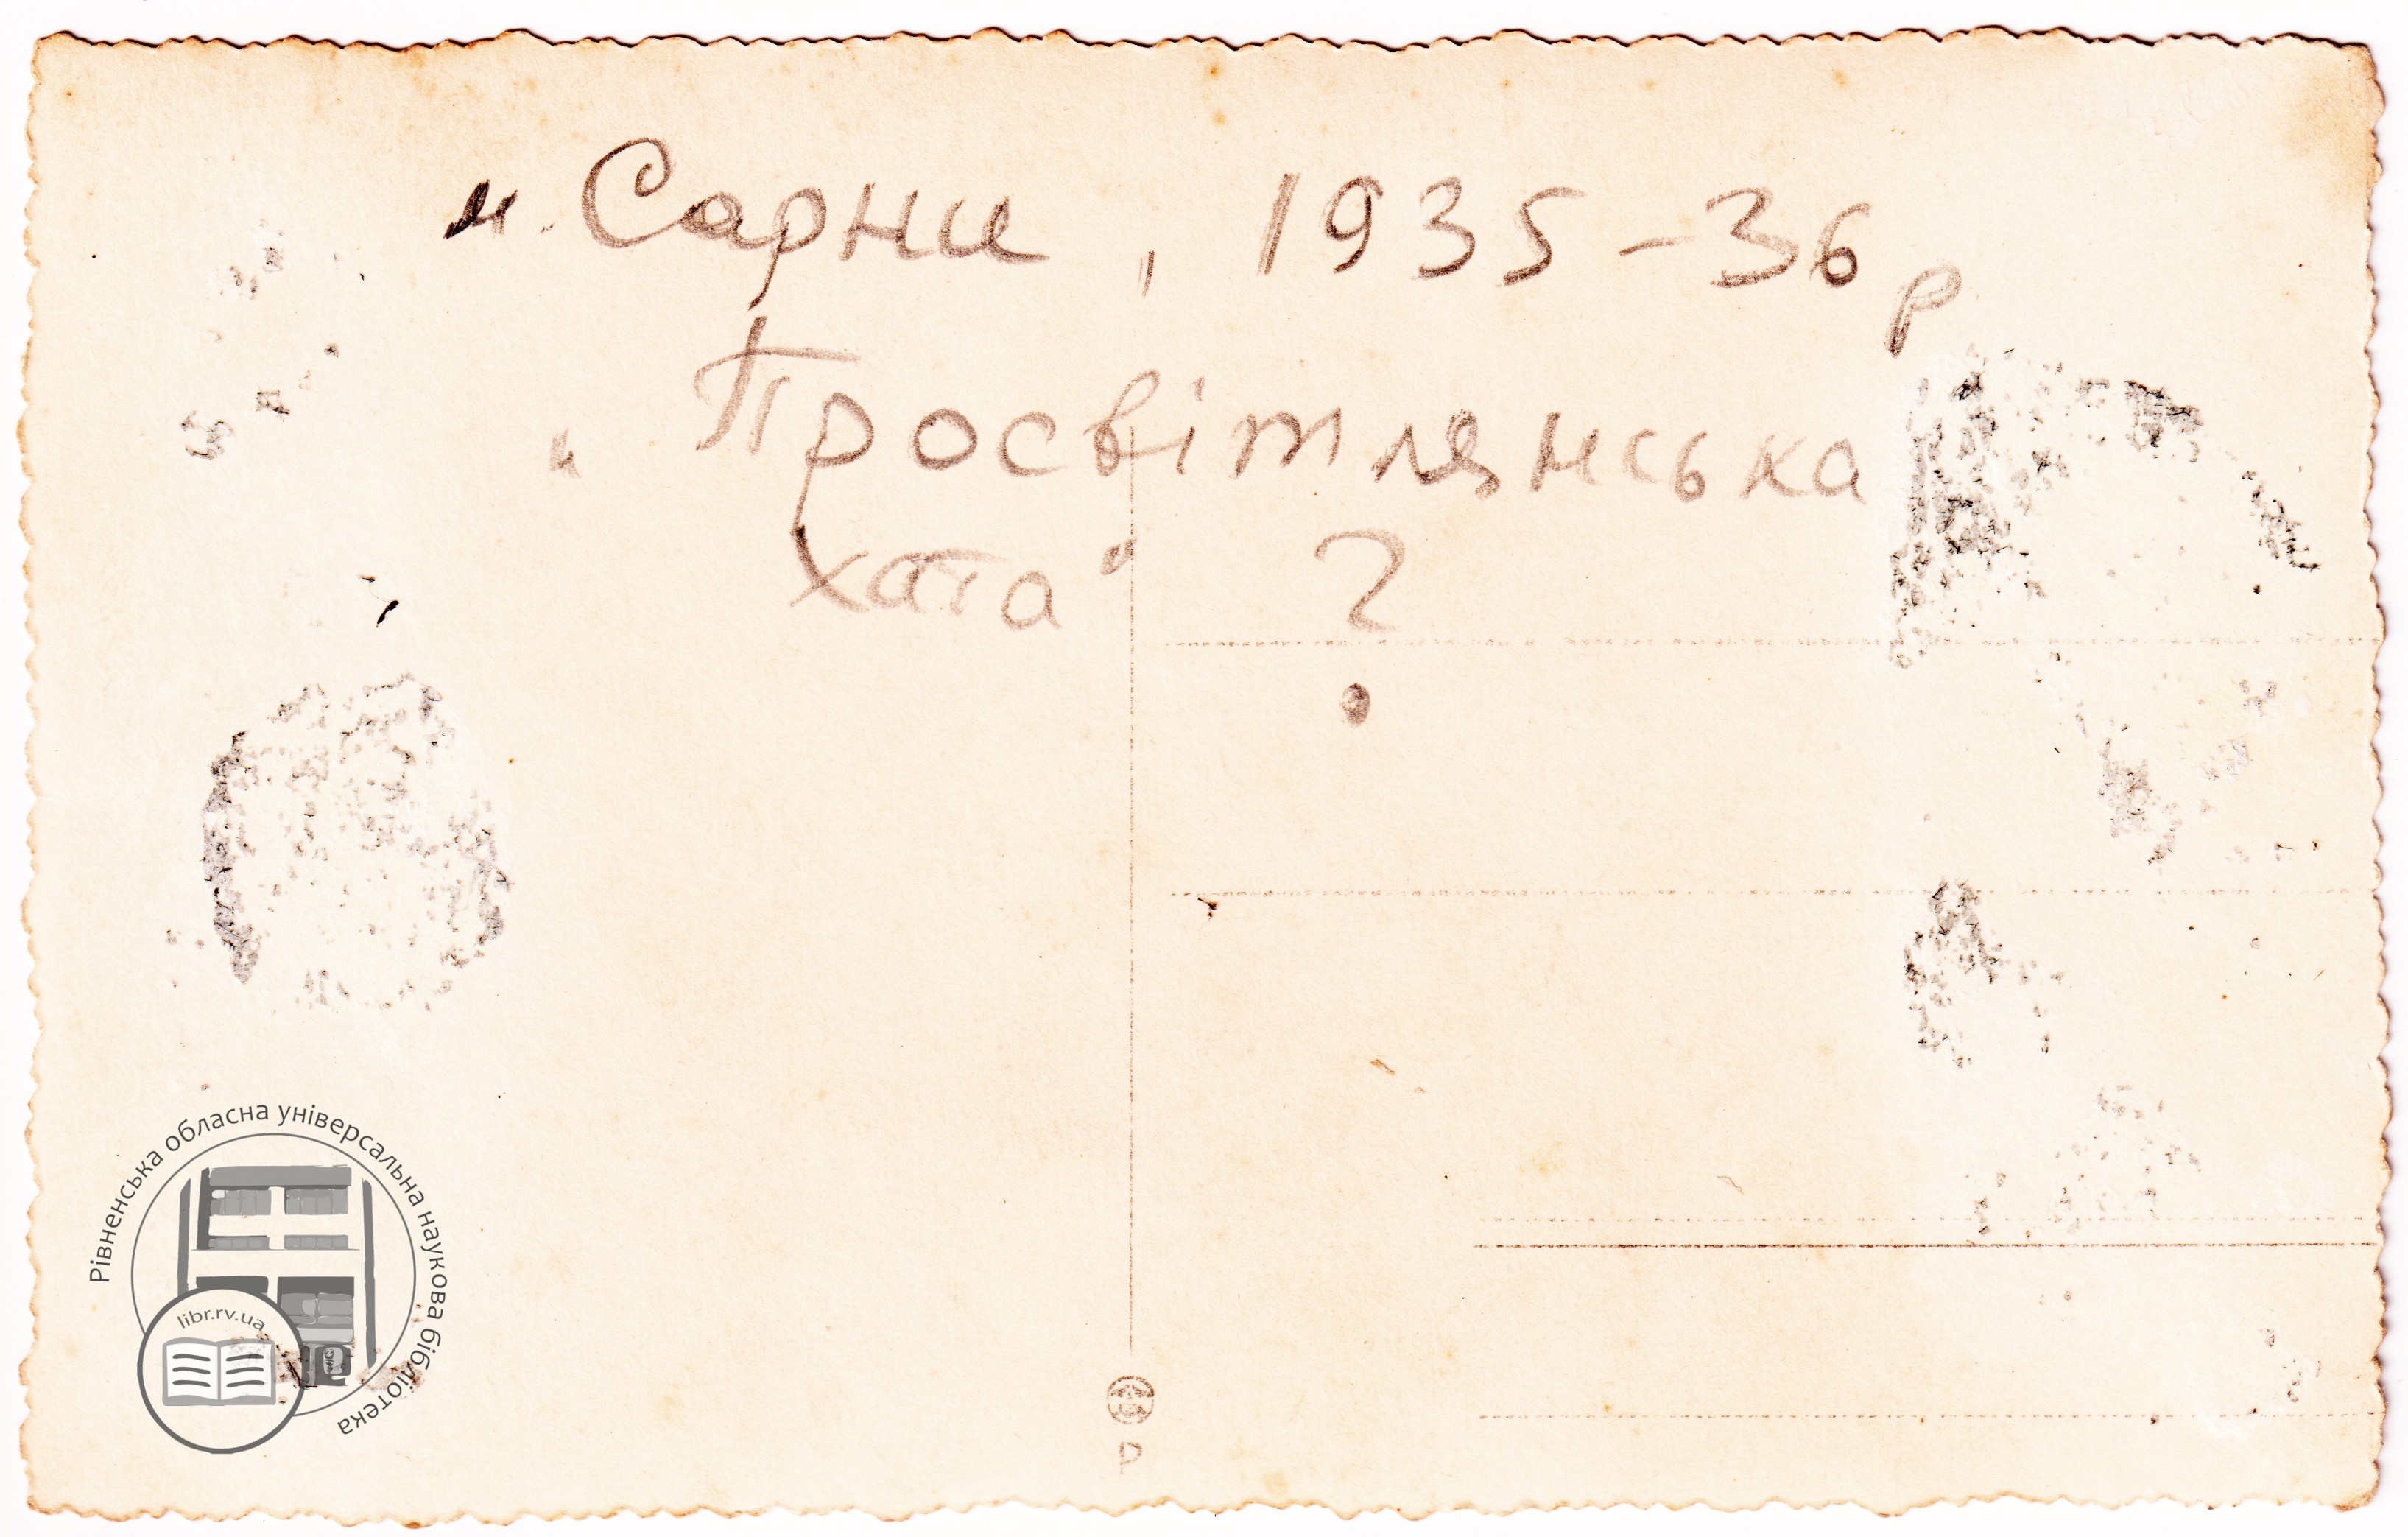 м. Сарни, 1935-36 р
„Просвітлянська
хата“ ?
Рівненська обласна універсальна наукова бібліотека
libr.rv.ua
P